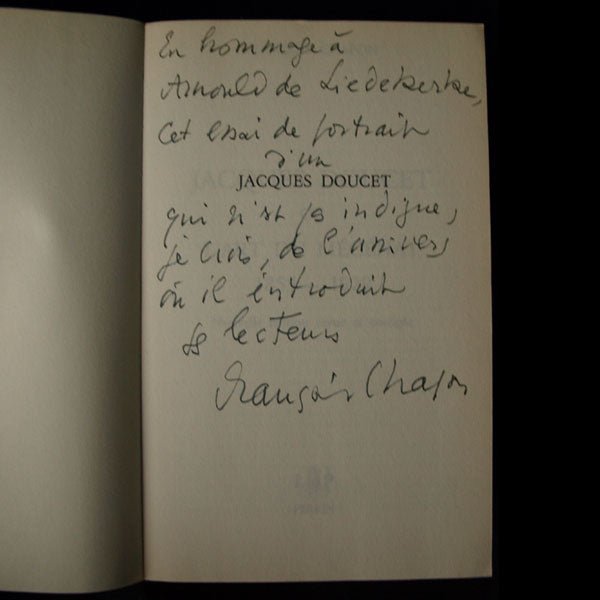 En hommage à
Arnould de Liedekerke,
Cet essai de portrait
d'un
JACQUES DOUCET
qui n'est pas indigne,
je crois, de l'univers
où il introduit
ses lecteurs
François Chapon